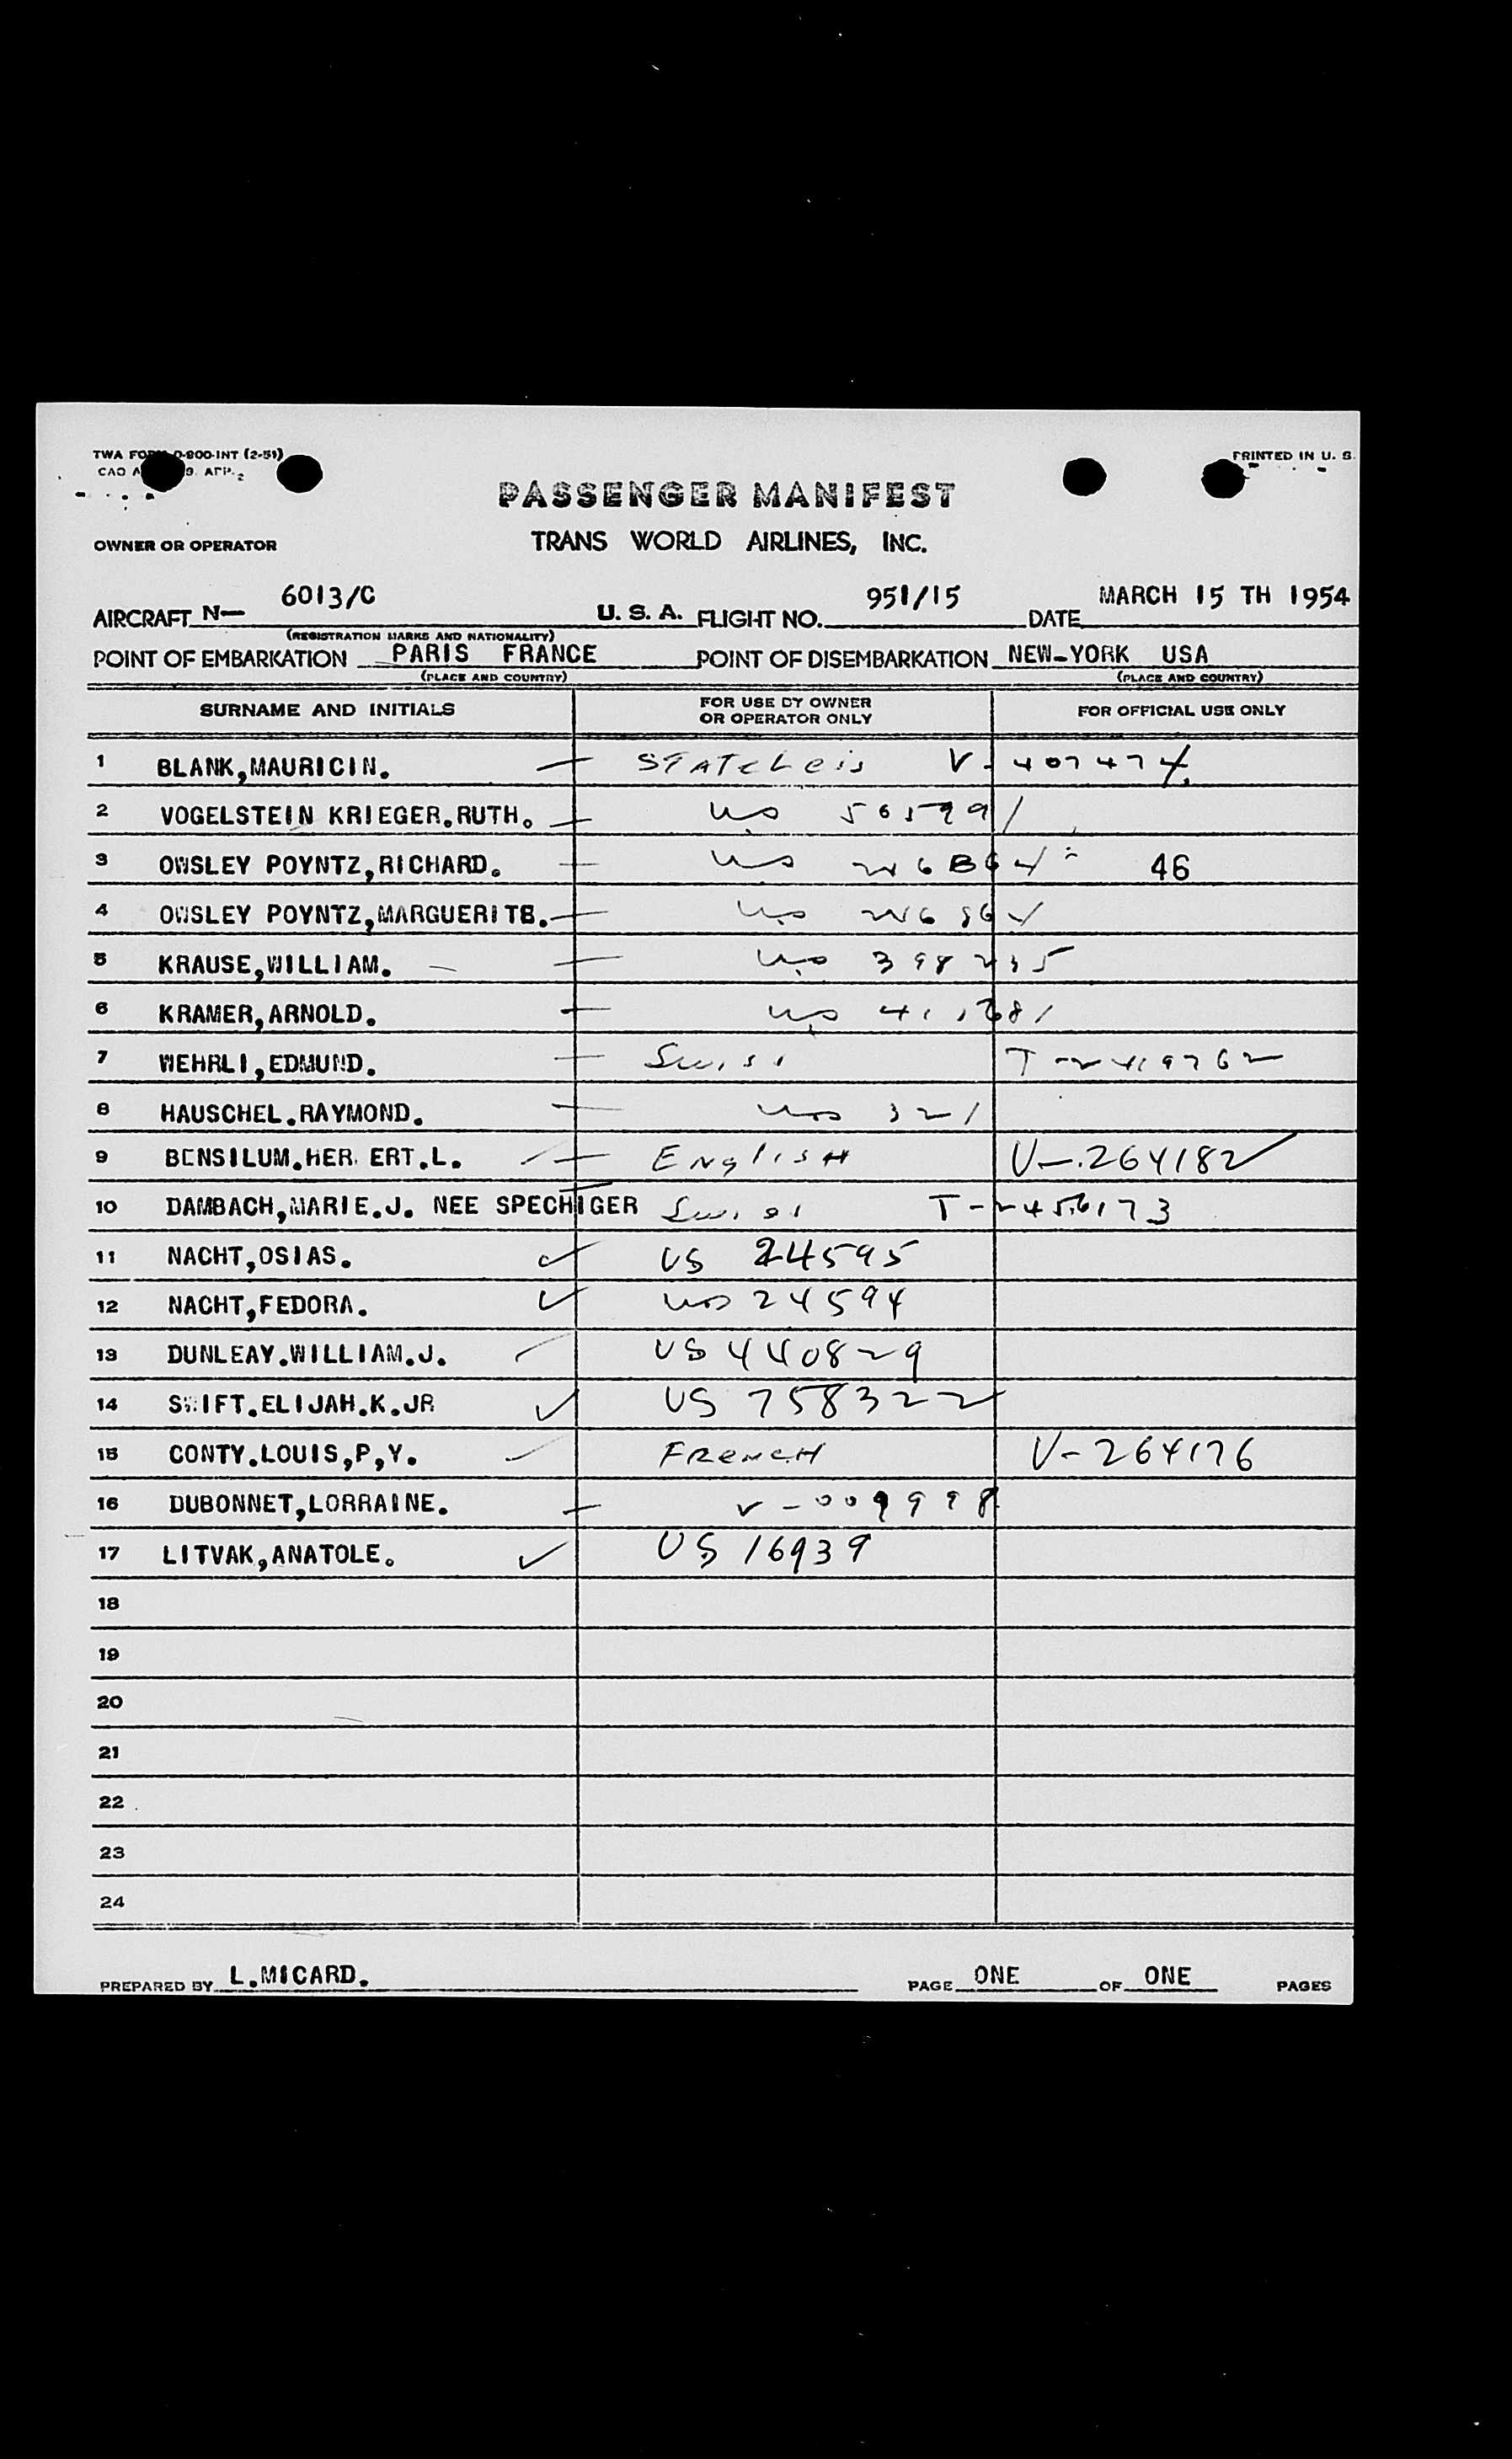 TWA FORM O-800-INT (2-51)
PRINTED IN U. S.
PASSENGER MANIFEST
OWNER OR OPERATOR TRANS WORLD AIRLINES, INC.
AIRCRAFT N— 6013/C U. S. A. FLIGHT NO. 951/15 DATE MARCH 15 TH 1954
(REGISTRATION MARKS AND NATIONALITY)
POINT OF EMBARKATION PARIS FRANCE POINT OF DISEMBARKATION NEW-YORK USA
(PLACE AND COUNTRY) (PLACE AND COUNTRY)
SURNAME AND INITIALS FOR USE BY OWNER OR OPERATOR ONLY FOR OFFICIAL USE ONLY
1 BLANK,MAURICIN. V- 407474
2 VOGELSTEIN KRIEGER.RUTH. US 565991
3 OWSLEY POYNTZ,RICHARD. US 46
4 OWSLEY POYNTZ,MARGUERITE. US
5 KRAUSE,WILLIAM. US 398235
6 KRAMER,ARNOLD. US
7 WEHRLI,EDMUND. Swiss T-2419762
8 HAUSCHEL.RAYMOND. US 321
9 BENSILUM.HER ERT.L. English V-.264182
10 DAMBACH,MARIE.J. NEE SPECHIGER Swiss T-2456173
11 NACHT,OSIAS. US 24595
12 NACHT,FEDORA. US 24594
13 DUNLEAY.WILLIAM.J. US 440829
14 SWIFT.ELIJAH.K.JR US 758322
15 CONTY.LOUIS,P,Y. FRENCH V-264176
16 DUBONNET,LORRAINE. V-009998
17 LITVAK,ANATOLE. US 16939
18
19
20
21
22
23
24
PREPARED BY L.MICARD. PAGE ONE OF ONE PAGES